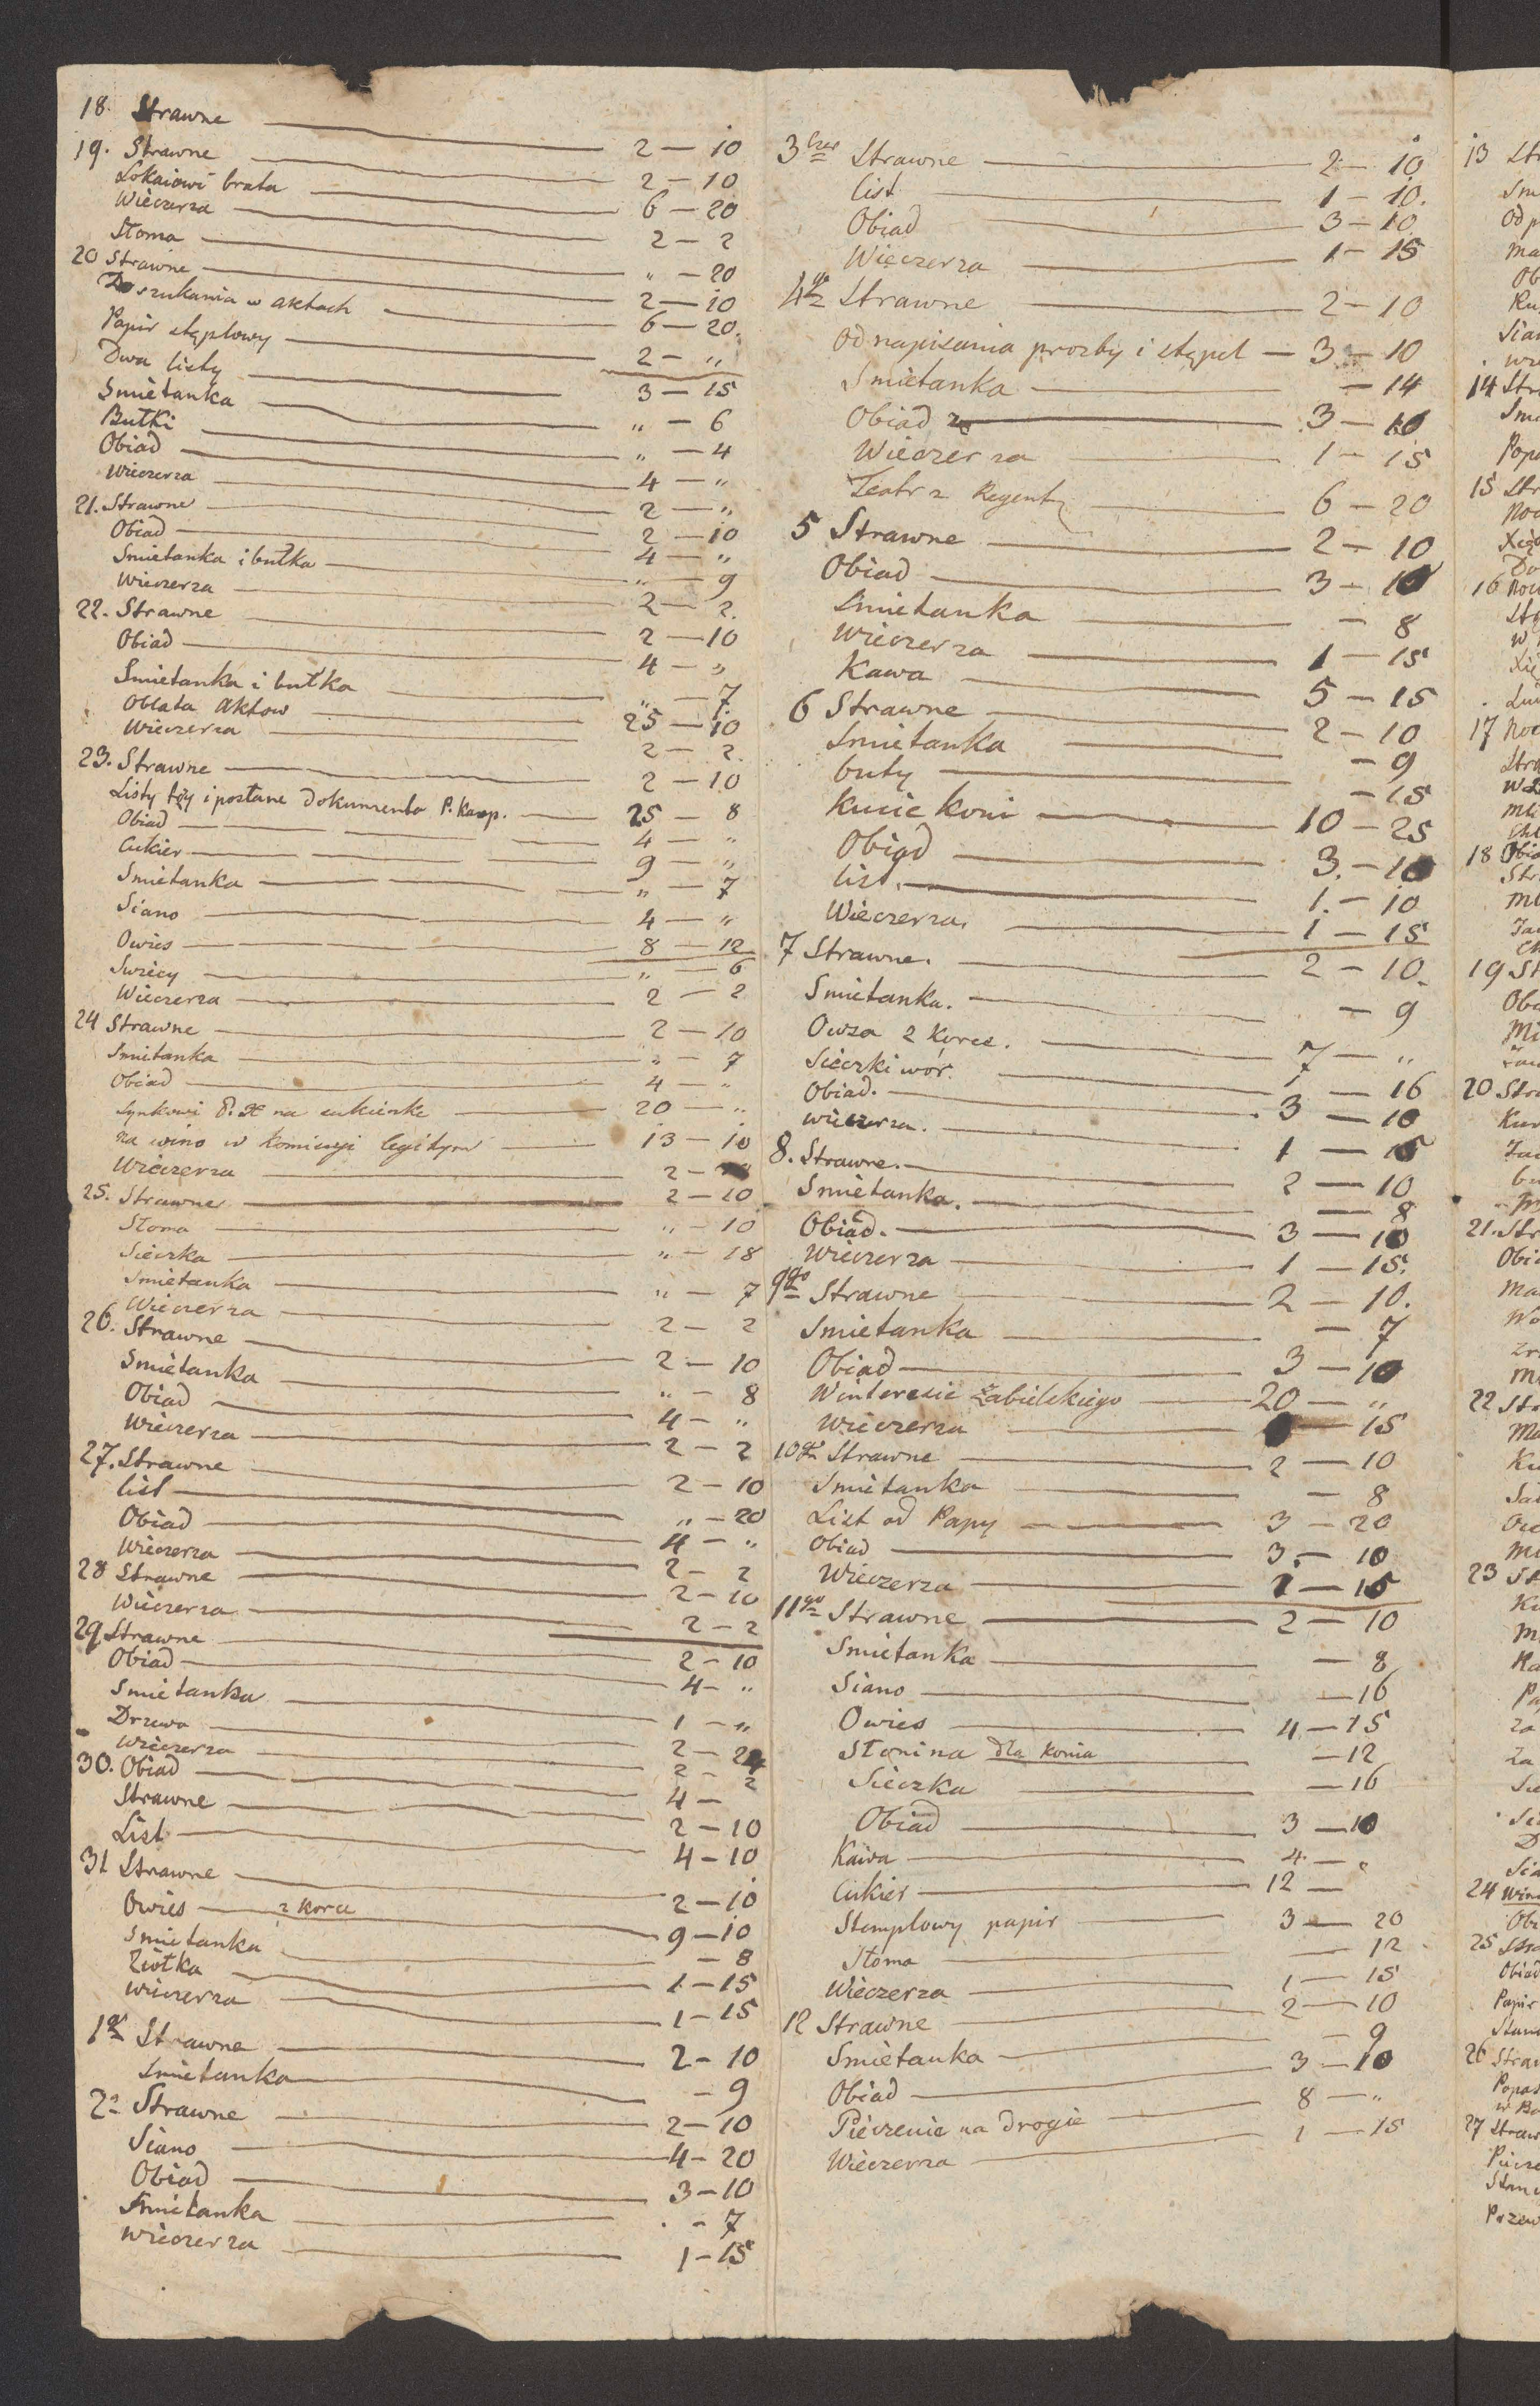 18. Strawne — 2 — 10
19. Strawne — 2 — 10
Lokaiowi brata — 6 — 20
Wieczerza — 2 — 2
Słoma — „ — 20
20 Strawne — 2 — 10
Do szukania w aktach — 6 — 20.
Papir stęplowy — 2 — „
Dwa listy — 3 — 15
Smietanka — „ — 6
Bułki — „ — 4
Obiad — 4 — „
Wieczerza — 2 — „
21. Strawne — 2 — 10
Obiad — 4 — „
Smietanka i bułka — „ — 9
Wieczerza — 2 — 2.
22. Strawne — 2 — 10
Obiad — 4 — „
Smietanka i bułka — „ — 7.
Oblata aktow — 25 — 10
Wieczerza — 2 — 2.
23. Strawne — 2 — 10
Listy i posłane dokumenta P. Kasp. — 25 — 8
Obiad — 4 — „
Cukier — 9 — „
Smietanka — „ — 7
Siano — 4 — „
Owies — 8 — 12
Swiecy — „ — 6
Wieczerza — 2 — 2
24 Strawne — 2 — 10
Smietanka — „ — 7
Obiad — 4 — „
Synkowi P. na cukierki — 20 — „
za wino w komissyi legitym — 13 — 10
Wieczerza — 2 —
25. Strawne — 2 — 10
Słoma — „ — 10
Sieczka — „ — 18
Smietanka — „ — 7
Wieczerza — 2 — 2
26. Strawne — 2 — 10
Smietanka — „ — 8
Obiad — 4 — „
Wieczerza — 2 — 2
27. Strawne — 2 — 10
list — „ — 20
Obiad — 4 — „
Wieczerza — 2 — 2
28 Strawne — 2 — 10
Wieczerza — 2 — 2
29 Strawne — 2 — 10
Obiad — 4 — „
Smietanka — 1 — „
Drzewo — 2 — 24
Wieczerza — 2 — 2
30. Obiad — 4 —
Strawne — 2 — 10
List — 4 — 10
31 Strawne — 2 — 10
Owies — 2 korce — 9 — 10
Smietanka — 8
Ziołka — 1 — 15
Wieczerza — 1 — 15
1go Strawne — 2 — 10
Smietanka — 9
2o Strawne — 2 — 10
Siano — 4 — 20
Obiad — 3 — 10
Smietanka — 7
Wieczerza — 1 — 15
3 Strawne — 2 — 10
list — 1 — 10.
Obiad — 3 — 10
Wieczerza — 1 — 15
4go Strawne — 2 — 10
Od napisania prozby i stępel — 3 — 10
Smietanka — 14
Obiad — 3 — 10
Wieczerza — 1 — 15
Teatr z Regentą — 6 — 20
5 Strawne — 2 — 10
Obiad — 3 — 10
Smietanka — 8
Wieczerza — 1 — 15
Kawa — 5 — 15
6 Strawne — 2 — 10
Smietanka — 9
buty — 15
Kucie koni — 10 — 25
Obiad — 3. — 10
list. — 1. — 10
Wieczerza. — 1 — 15
7 Strawne. — 2 — 10.
Smietanka. — 9
Owsa 2 korce. — 7 — „
Sieczki wór. — 1 — 16
Obiad. — 3 — 10
wieczerza. — 1 — 15
8. Strawne. — 2 — 10
Smietanka. — 8
Obiad. — 3 — 10
Wieczerza — 1 — 15.
9go Strawne — 2 — 10.
Smietanka — 7
Obiad — 3 — 10
W interesie Zabielskiego — 20 — „
Wieczerza — 15
10go Strawne — 2 — 10
Smietanka — 8
List od Papy — 3 — 20
Obiad — 3. — 10
Wieczerza — 1 — 15
11go Strawne — 2 — 10
Smietanka — 8
Siano — 16
Owies — 4 — 15
Słonina dla konia — 12
Sieczka — 16
Obiad — 3 — 10
Kawa — 4 — „
Cukier — 12 —
Stemplowy papir — 3 — 20
Słoma — 12
Wieczerza — 1 — 15
12 Strawne — 2 — 10
Smietanka — 9
Obiad — 3 — 10
Pieczenie na drogie — 8 — „
Wieczerza — 1 — 15
13
14
15
16
17
18
19
20
21.
22
23
24
25
26
27